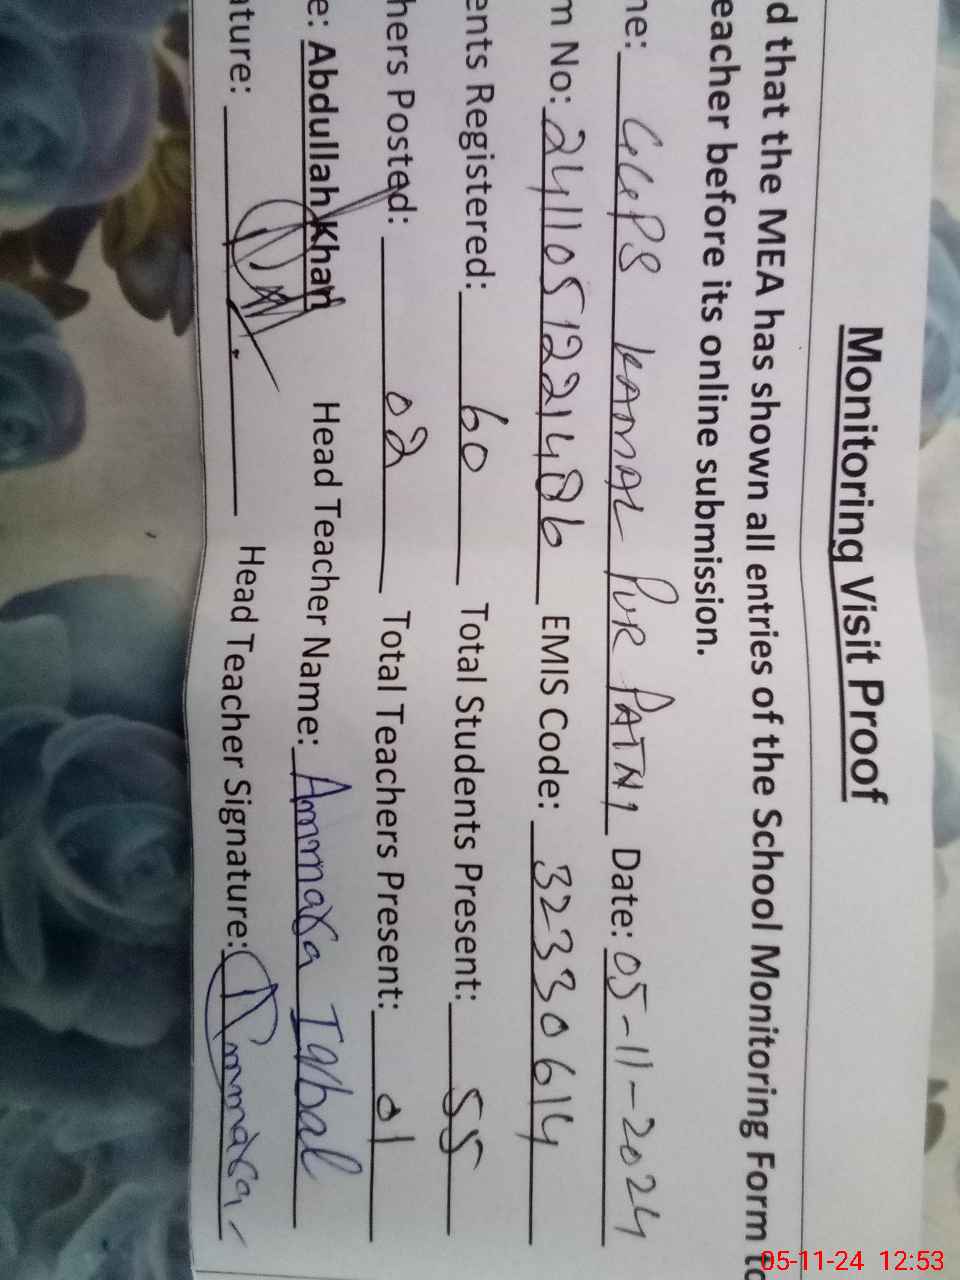 Monitoring Visit Proof
d that the MEA has shown all entries of the School Monitoring Form to
eacher before its online submission.
ne: GGPS KAMAL PUR PATNI Date: 05-11-2024
m No: 241105122148b EMIS Code: 32330614
ents Registered: 60 Total Students Present: 55
hers Posted: 02 Total Teachers Present: 01
e: Abdullah Khan Head Teacher Name: Ammara Iqbal
ature: Head Teacher Signature: Ammara
05-11-24 12:53